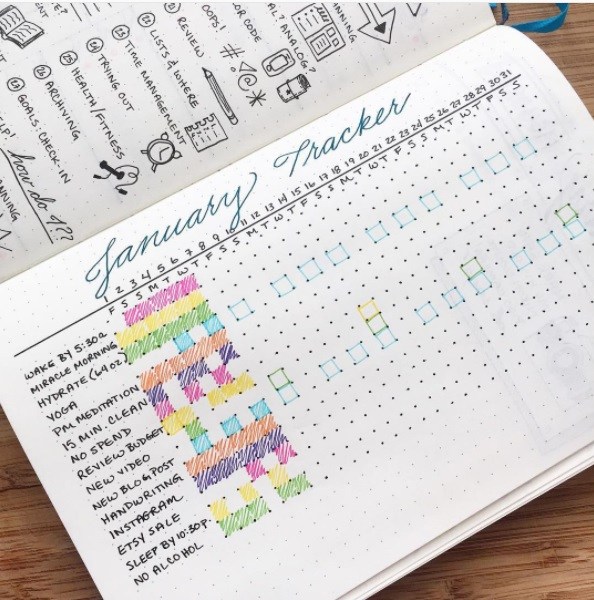 GOALS: CHECK-IN
ARCHIVING
HEALTH/FITNESS
TRYING OUT
TIME MANAGEMENT
LISTS & WHERE
REVIEW
OOPS!
COLOR CODE
ANALOG?
how do I???
January Tracker
1 2 3 4 5 6 7 8 9 10 11 12 13 14 15 16 17 18 19 20 21 22 23 24 25 26 27 28 29 30 31
F S S M T W T F S S M T W T F S S M T W T F S S M T W T F S S
WAKE BY 5:30A
MIRACLE MORNING
HYDRATE (64OZ)
YOGA
PM MEDITATION
15 MIN. CLEAN
NO SPEND
REVIEW BUDGET
NEW VIDEO
NEW BLOG POST
HANDWRITING
INSTAGRAM
ETSY SALE
SLEEP BY 10:30P.
NO ALCOHOL